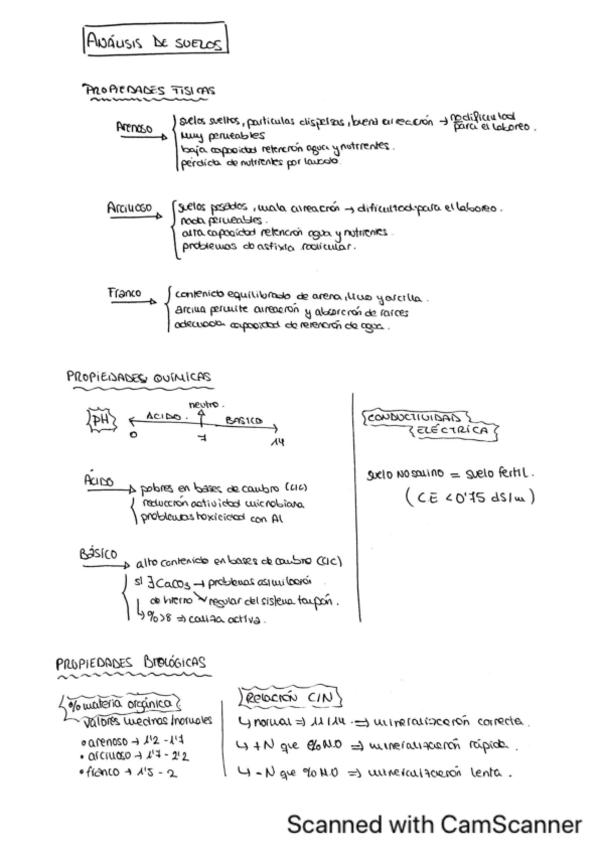 ANÁLISIS DE SUELOS
PROPIEDADES FISICAS
Arenoso
suelos sueltos, particulas dispersas, buena aireación → no dificultad
para el laboreo.
Muy permeables
baja capacidad retención agua y nutrientes.
pérdida de nutrientes por lavado
Arcilloso
suelos pesados, mala aireación → dificultad para el laboreo.
nada permeables.
alta capacidad retención agua y nutrientes.
problemas de asfixia radicular.
Franco
contenido equilibrado de arena, limo y arcilla.
arcilla permite aireación y absorción de raíces
adecuada capacidad de retención de agua.
PROPIEDADES QUÍMICAS
PH
ACIDO.
neutro.
BASICO
0
7
14
ÁCIDO
pobres en bases de cambio (CIC)
reducción actividad microbiana
problemas toxicidad con Al
BÁSICO
alto contenido en bases de cambio (CIC)
si ∃ CaCO3 → problemas asimilación
de hierro
regular del sistema tampón.
↳ % >8 ⇒ caliza activa.
CONDUCTIVIDAD
ELÉCTRICA
suelo NO salino = suelo fertil.
(CE < 0'75 dS/m)
PROPIEDADES BIOLÓGICAS
% materia orgánica
Valores medios/normales
• arenoso → 1'2 - 1'7
• arcilloso → 1'7 - 2'2
• franco → 1'5 - 2
RELACIÓN C/N
↳ normal ⇒ 11/14 ⇒ mineralización correcta.
↳ +N que %MO ⇒ mineralización rápida.
↳ -N que %MO ⇒ mineralización lenta.
Scanned with CamScanner